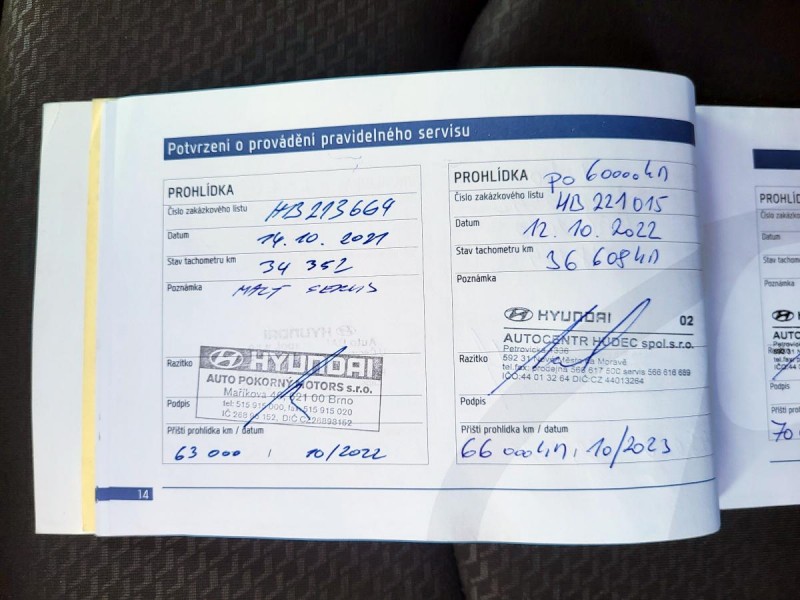 Potvrzení o provádění pravidelného servisu
PROHLÍDKA
Číslo zakázkového listu HB213664
Datum 14.10.2021
Stav tachometru km 34 352
Poznámka MALÝ SERVIS
Razítko HYUNDAI
AUTO POKORNÝ MOTORS s.r.o.
Maříkova 621 00 Brno
tel: 515 915 000, fax: 515 915 020
DIČ CZ26898152
Podpis
Příští prohlídka km / datum
63 000 , 10/2022
14
PROHLÍDKA PO 60000 km
Číslo zakázkového listu HB 221015
Datum 12.10.2022
Stav tachometru km 36 608 km
Poznámka
HYUNDAI 02
AUTOCENTR HUDEC spol.s.r.o.
Petrovická
592 31 Nové Město na Moravě
tel.fax: prodejna 566 617 500 servis 566 616 689
IČO:44 01 32 64 DIČ:CZ 44013264
Razítko
Podpis
Příští prohlídka km / datum
66 000 km, 10/2023
Číslo zakázk
Datum
Stav tachom
Poznámka
Podpis
Příští prohl
70